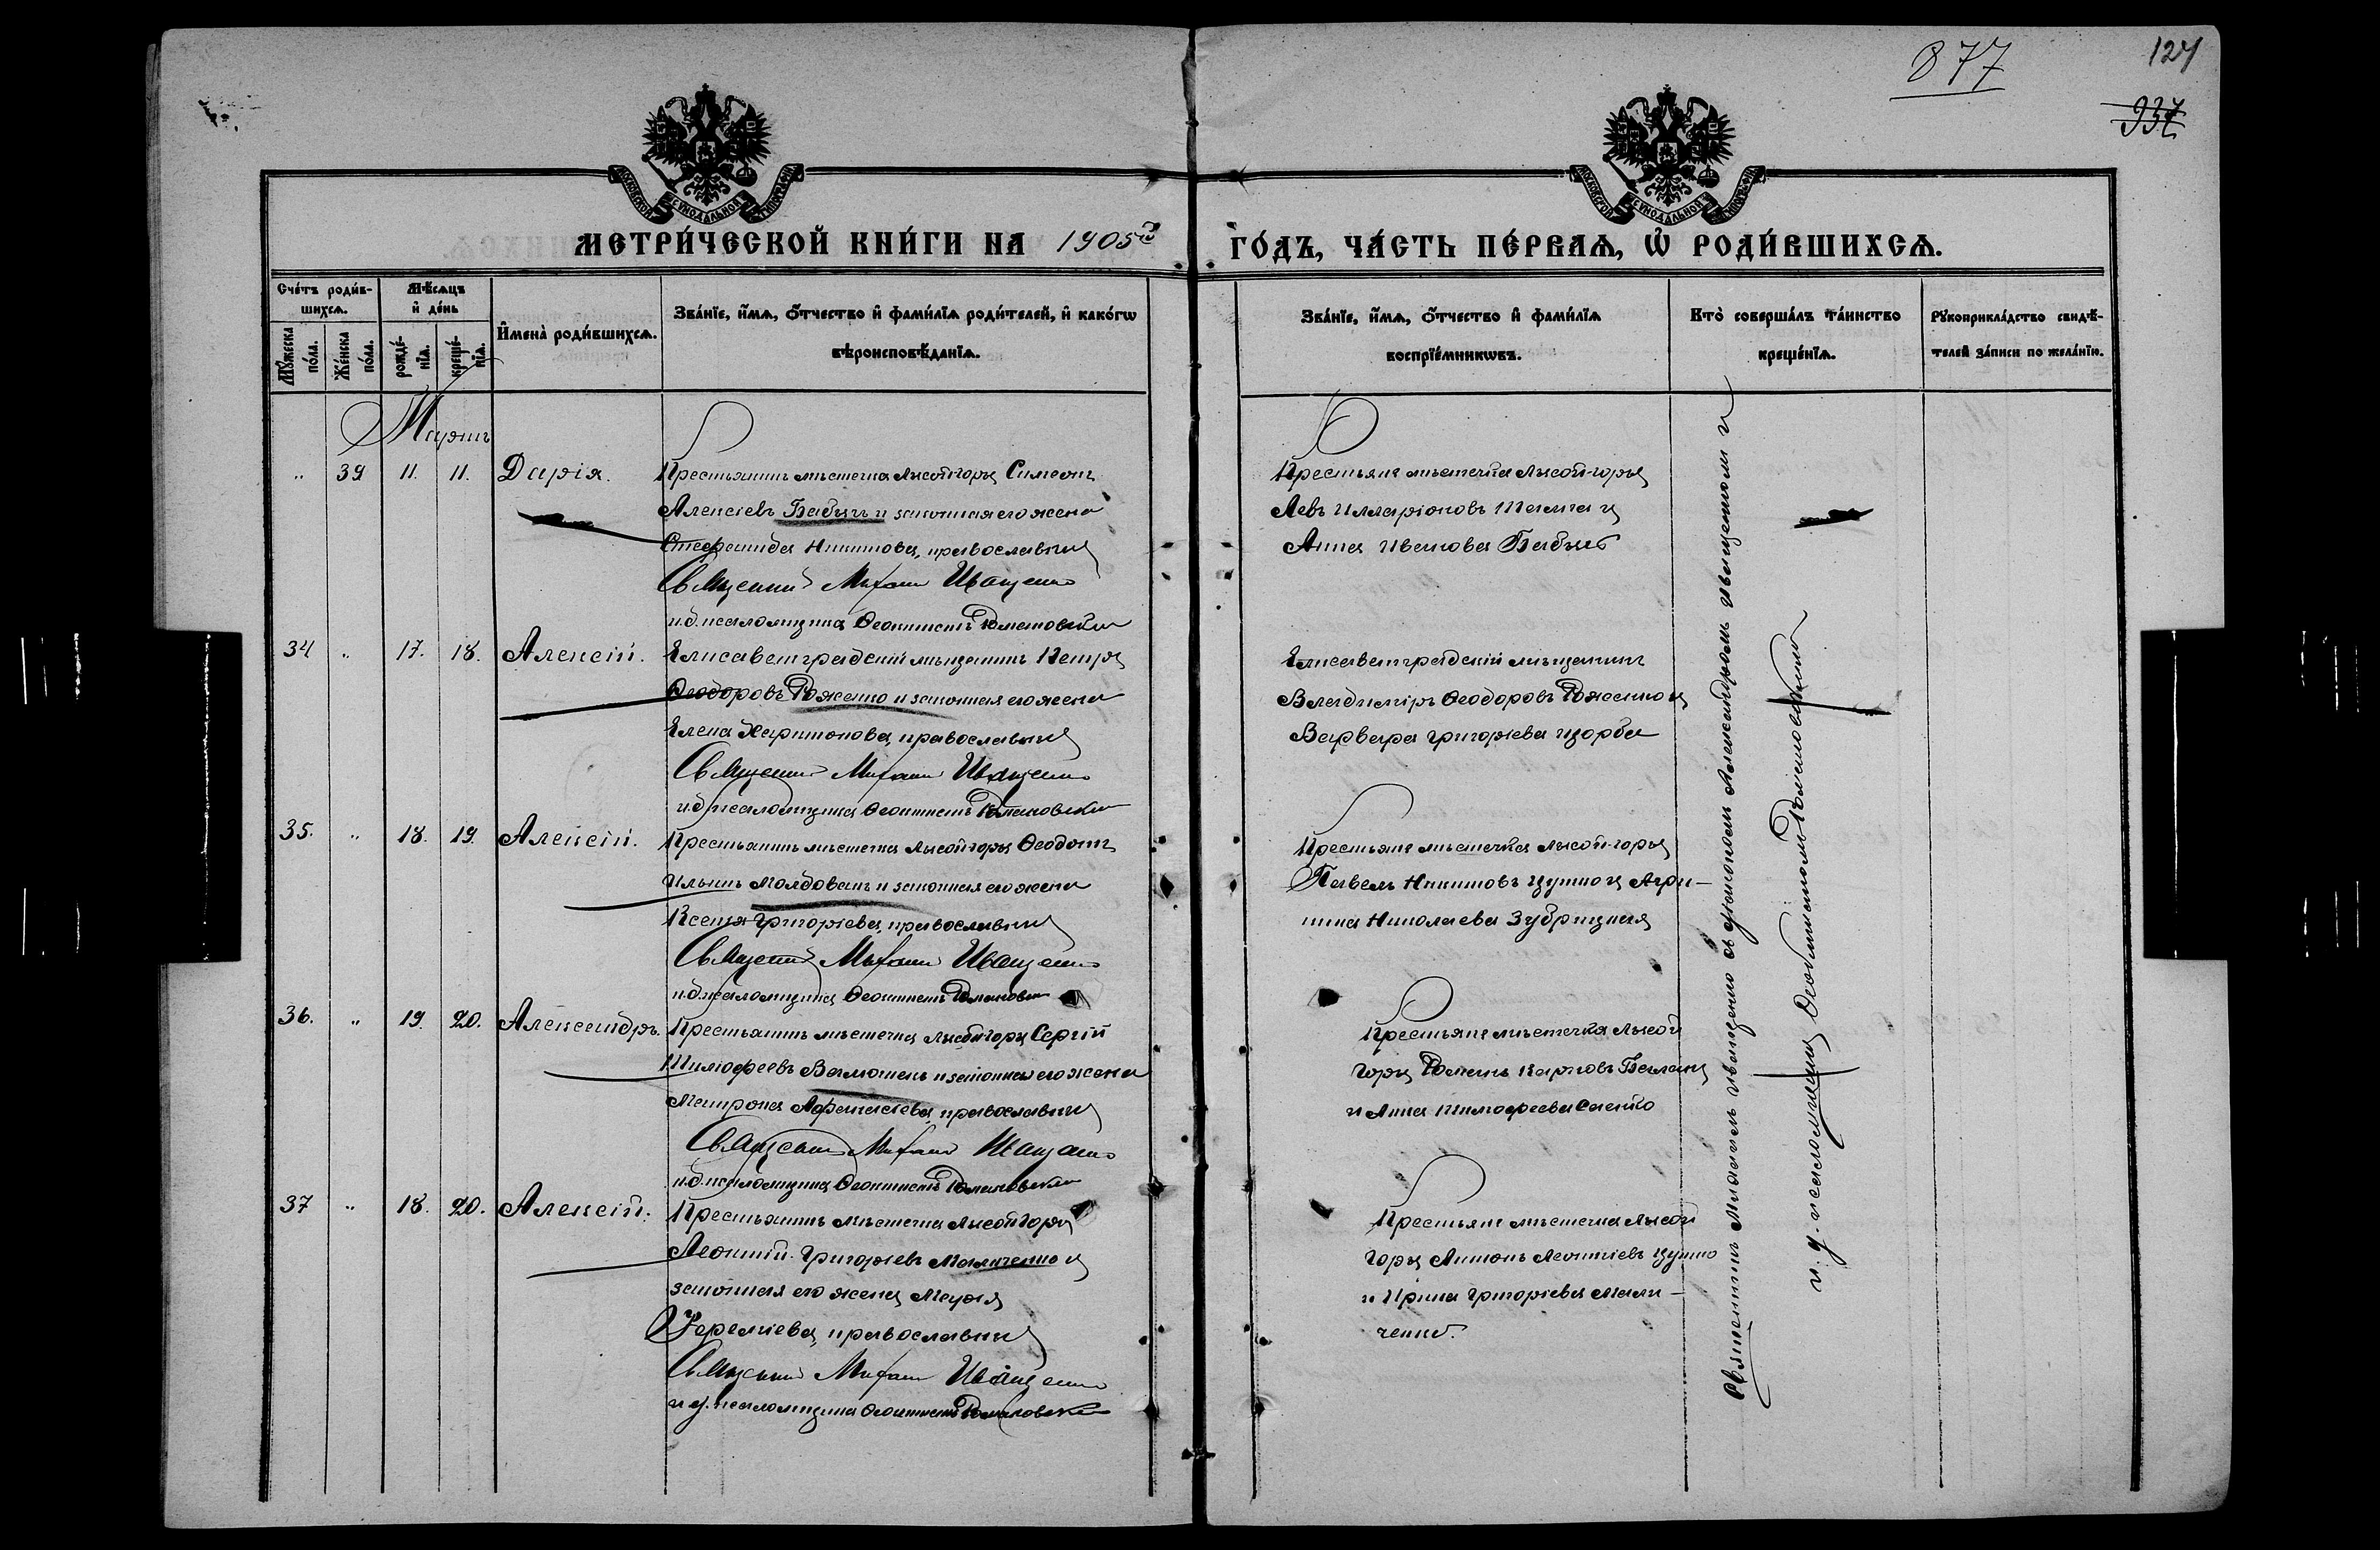 877
124
937
МЕТРИ́ЧЕСКОЙ КНИ́ГИ НА 1905й ГО́ДЪ, ЧА́СТЬ ПЕ́РВАѦ, Ѡ РОДИ́ВШИХСѦ.
Сче́тъ роди́в-
шихсѧ.
Мꙋ́жеска по́ла.
Же́нска по́ла.
Мѣ́сѧцъ
и҆ де́нь
рожде́-
нїѧ.
креще́-
нїѧ.
И҆мена̀ роди́вшихсѧ.
Зва́нїе, и҆́мѧ, ѻ҆́тчество и҆ фами́лїѧ роди́телей, и҆ како́гѡ
вѣроисповѣ́данїѧ.
Зва́нїе, и҆́мѧ, ѻ҆́тчество и҆ фами́лїѧ
воспрїе́мникѡвъ.
Кто̀ соверша́лъ та́инство
креще́нїѧ.
Рꙋкоприкла́дство свидѣ́-
телей за́писи по жела́нїю.
Мартъ
" 39 11. 11. Дарія.
Крестьянинъ мѣстечка Лысой горы Симеонъ
Алексіевъ Бабычъ и законная его жена
Стефанида Никитова, православныя
Священникъ Михаилъ Иващенко
и.д. псаломщика Феоктистъ Романовскій
Крестьяне мѣстечка Лысой-горы
Левъ Илларіоновъ и
Анна Иванова Бабычъ
34 " 17. 18. Алексій.
Елисаветградскій мѣщанинъ Петръ
Ѳеодоровъ Роженко и законная его жена
Елена Харитонова, православныя
Священникъ Михаилъ Иващенко
и.д. псаломщика Ѳеоктистъ Романовскій
Елисаветградскій мѣщанинъ
Владиміръ Ѳеодоровъ Роженко и
Варвара Григорьева
35. " 18. 19. Алексій.
Крестьянинъ мѣстечка Лысой горы Ѳеодотъ
Ильинъ Молдованъ и законная его жена
Ксенія Григорьева, православныя
Священникъ Михаилъ Иващенко
и.д. псаломщика Ѳеоктистъ Романовскій
Крестьяне мѣстечка Лысой-горы
Павелъ Никитовъ Цупко и Агри-
пина Николаева Зубрицкая
36. " 19. 20. Александръ.
Крестьянинъ мѣстечка Лысой горы Сергій
Тимофеевъ и законная его жена
Матрона Афанасіева, православныя
Священникъ Михаилъ Иващенко
и.д. псаломщика Ѳеоктистъ Романовскій
Крестьяне мѣстечка Лысой
горы Романъ Карповъ
и Анна Тимофеева Саенко
37 " 18. 20. Алексій.
Крестьянинъ мѣстечка Лысой горы
Леонтій Григорьевъ Маличенко и
законная его жена Марія
Іереміева, православныя
Священникъ Михаилъ Иващенко
и д. псаломщика Ѳеоктистъ Романовскій
Крестьяне мѣстечка Лысой
горы Антонъ Леонтіевъ Цупко
и Ирина Григоріева Мали-
ченко.
Священникъ Михаилъ Иващенко съ діакономъ Александромъ Иващенкомъ и
и. д. псаломщика Ѳеоктистомъ Романовскимъ